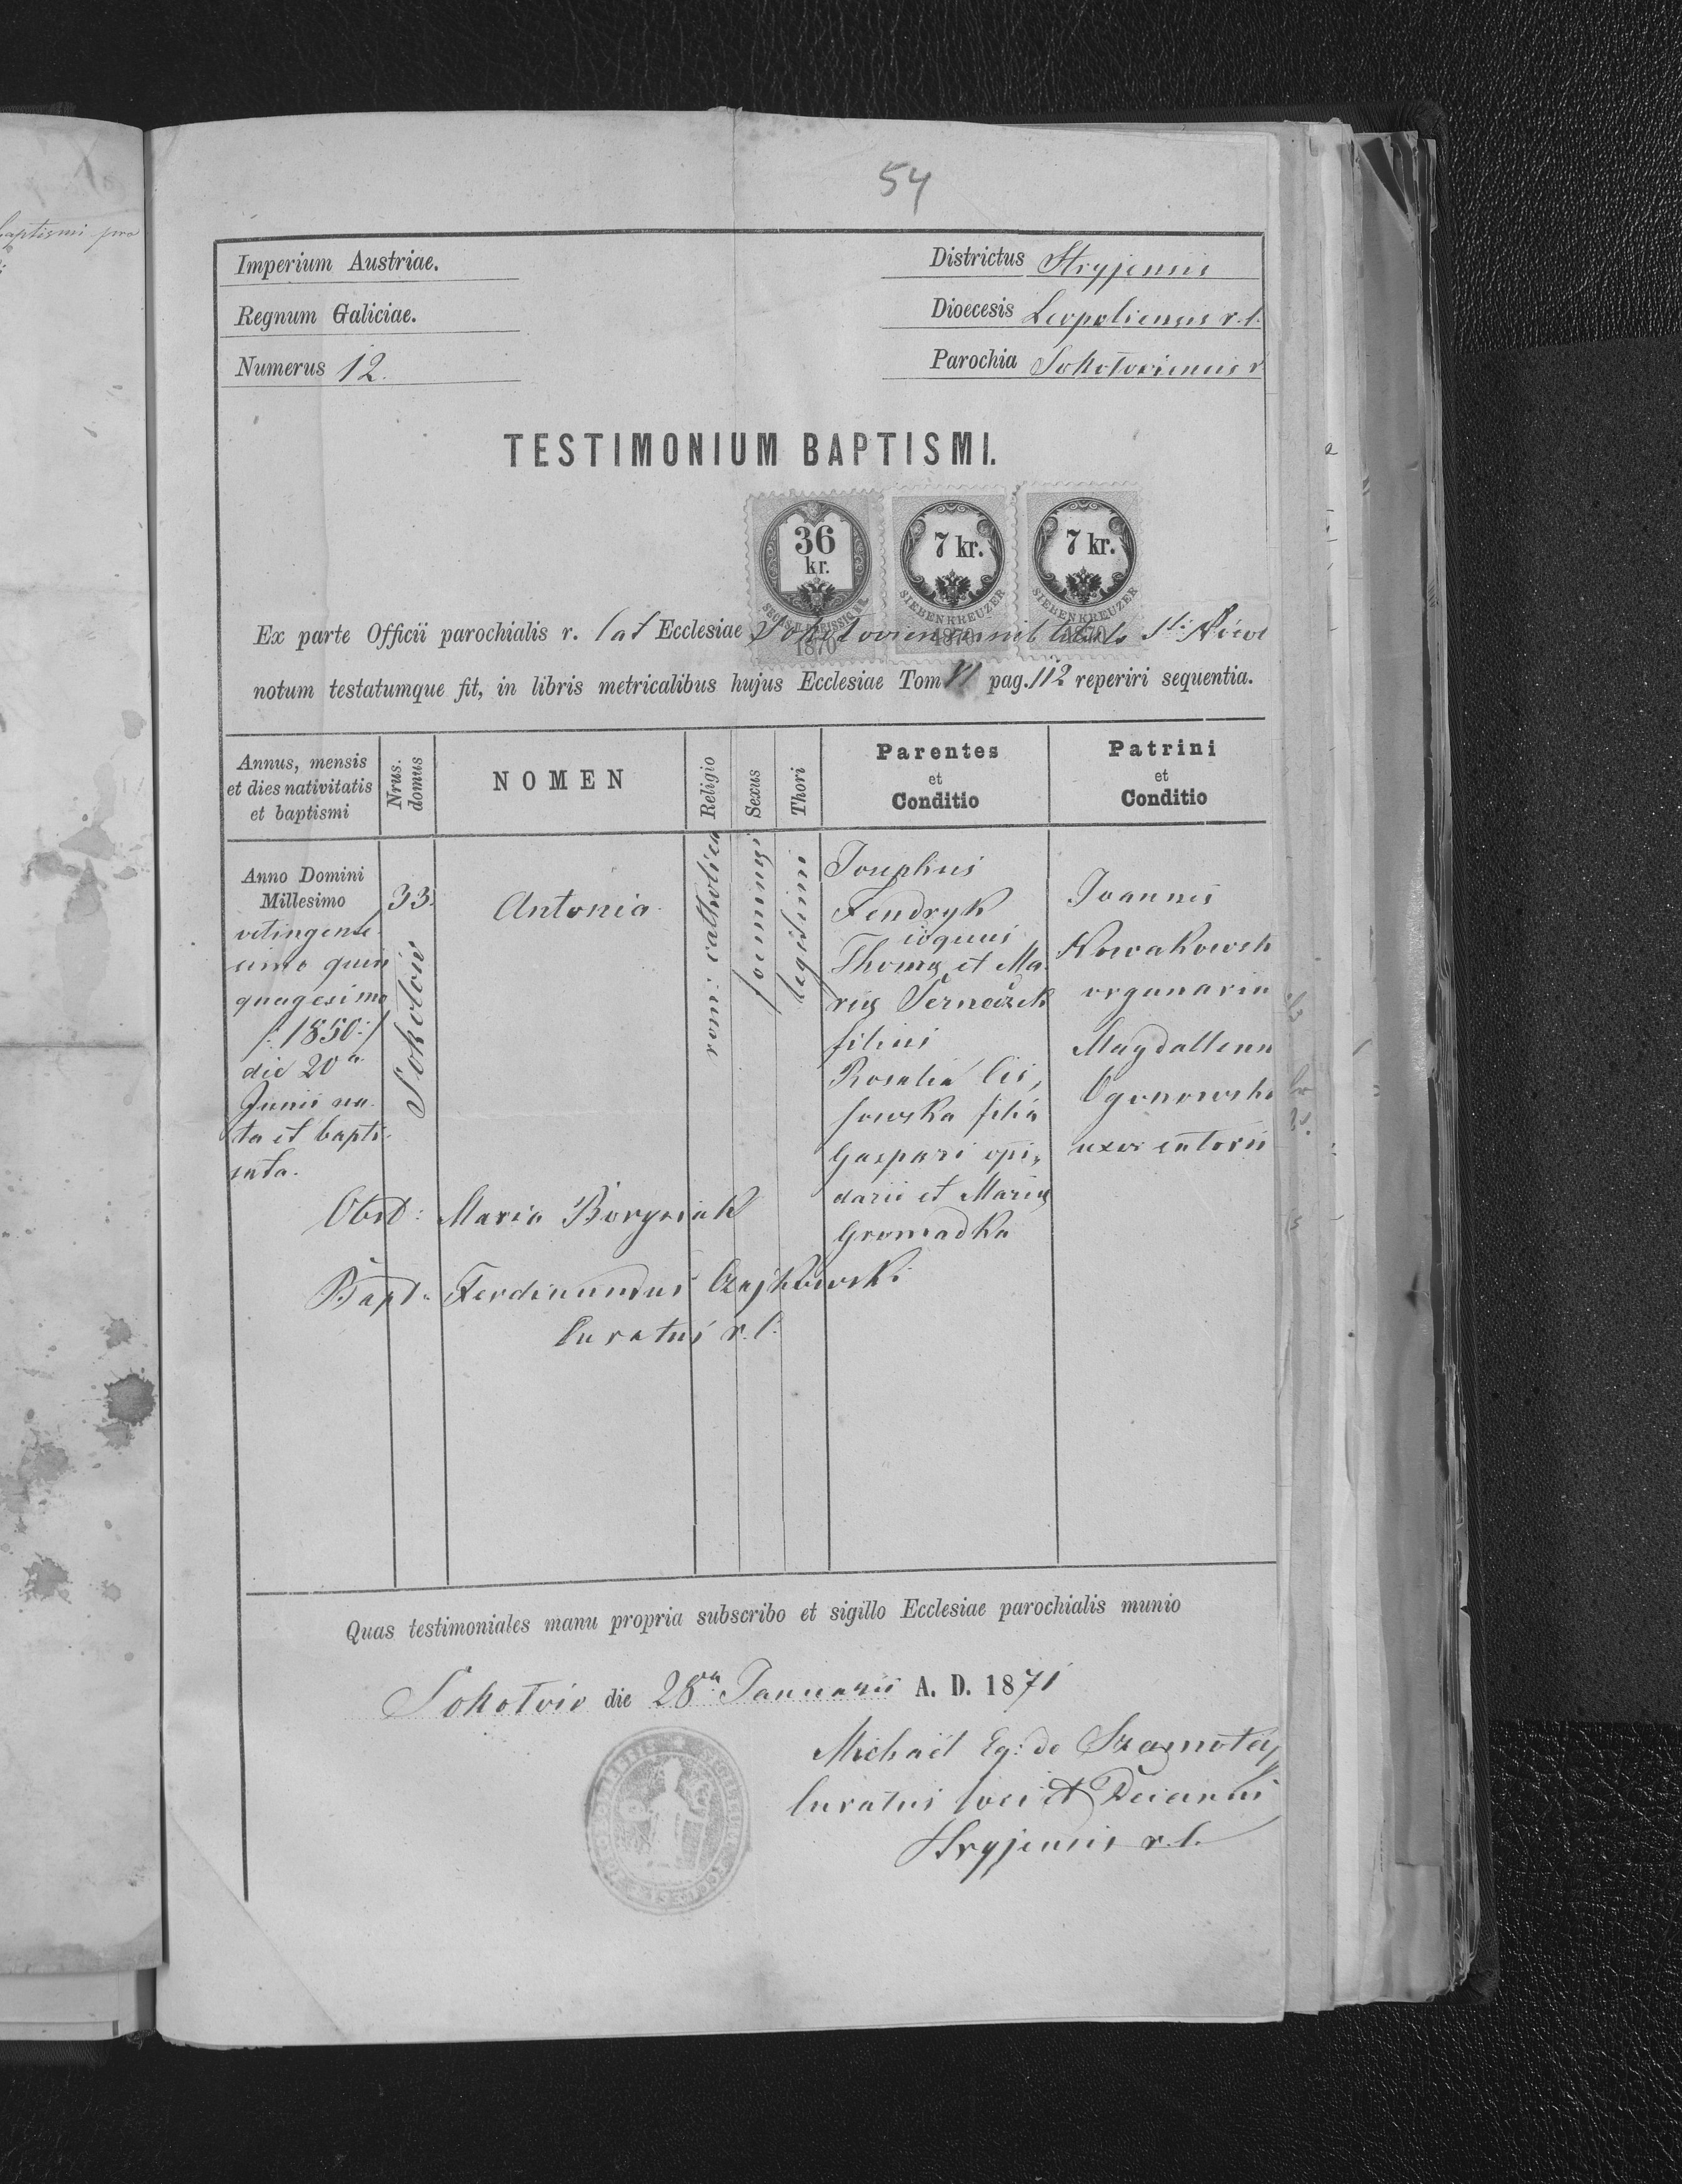 54
baptismi pro
Imperium Austriae.
Districtus Stryjensis
Regnum Galiciae.
Dioecesis Leopoliensis r. l.
Numerus 12.
Parochia Sokołoviensis r
TESTIMONIUM BAPTISMI.
36 kr.
7 kr.
7 kr.
SIEBENKREUZER
SIEBENKREUZER
1870
1870
1870
Ex parte Officii parochialis r. lat Ecclesiae Sokołoviensis sub titulo Sti
notum testatumque fit, in libris metricalibus hujus Ecclesiae Tom VI pag. 112 reperiri sequentia.
Annus, mensis et dies nativitatis et baptismi
Nrus. domus
NOMEN
Religio
Sexus
Thori
Parentes et Conditio
Patrini et Conditio
Anno Domini
Millesimo
octingente
simo quin
quagesimo
/: 1850 :/
die 20a
Junii na
ta et bapti
sata.
33.
Sokołów
Antonia
rom: catholica
foeminini
legitimi
Josephus
Fendryk
coquus
Thomę et Ma
rię
filius
Rosalia Lis,
sowska filia
Gaspari opi,
darii et Marię
Gromadka
Joannes
Nowakowsk
organariu
Magdallenn
Ogonowska
uxor
Obst: Maria Borysiak
Bapt: Ferdinandus Czajkowski
Curatus r. l.
Quas testimoniales manu propria subscribo et sigillo Ecclesiae parochialis munio
Sokołów die 28va Januarii A. D. 1871
Michael Eq: de Szamotay
Curatus loci et Decanus
Stryjensis r. l.